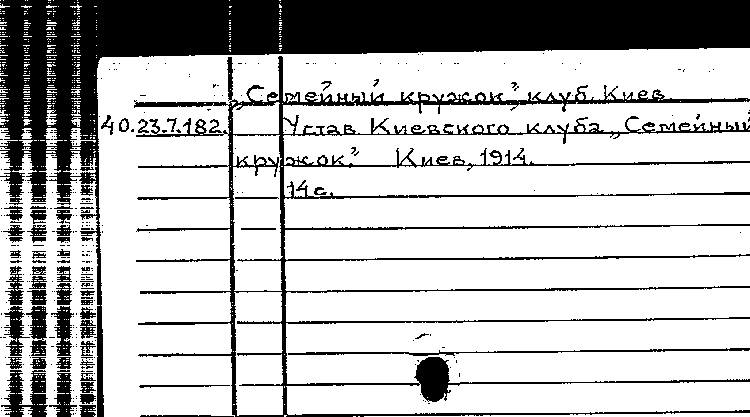 „Семейный кружок”, клуб. Киев
40.23.7.182. Устав Киевского клуба „Семейный
кружок.” Киев, 1914.
14с.